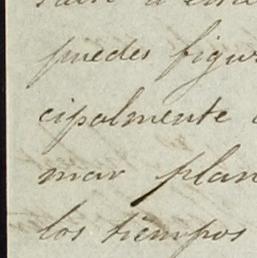 puedes figur
cipalmente
mar plan
los tiempos